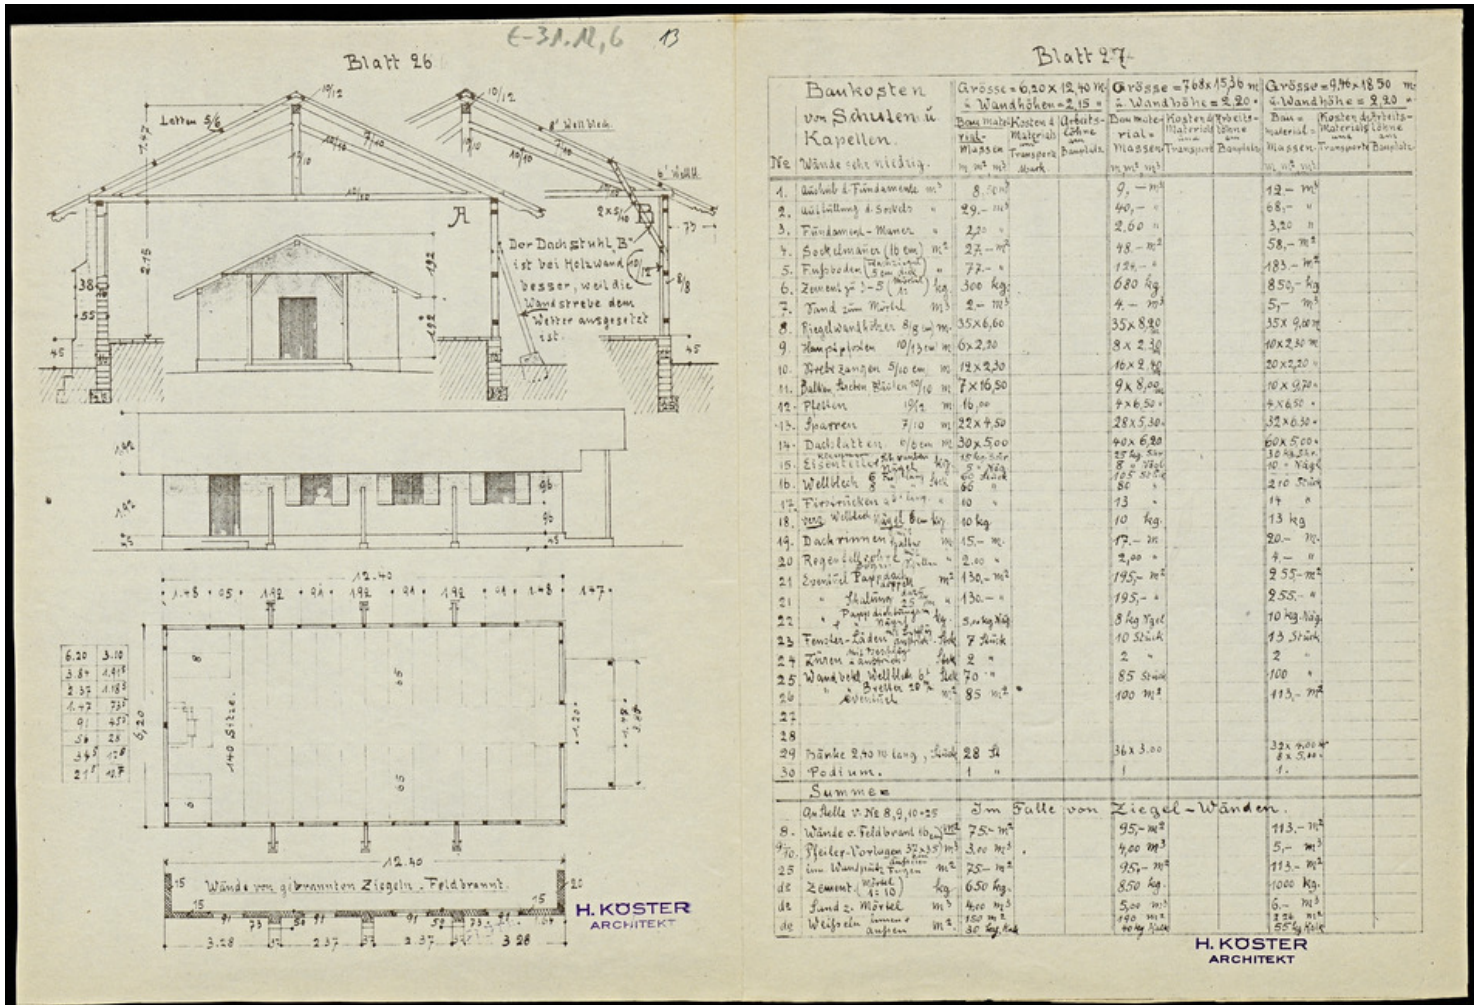 E-31.12,6
13
Blatt 26
10/12
10/12
Latten 5/6
7/10
8' Wellblech
7/10
10/10
10/10
6' Wellbl.
10/10
A
B
2 x 5/10
73
1.47
2.15
38
55
45
Der Dachstuhl „B"
ist bei Holzwand
besser, weil die
Wandstrebe dem
Wetter ausgesetzt
ist.
10/12
8/8
45
192
192
1,92
1,92
45
96
96
45
12.40
1.48 95 192 91 192 91 1.48 1.47
6.20 3.10
2.37
1.47 73⁵
91 45⁵
56 28
6,20
140 Sitze.
65
65
8
8
1.20
12.40
Wände von gebrannten Ziegeln. Feldbrannt.
15
20
15
15
3.28 2.37 2.37 3.28
H. KÖSTER
ARCHITEKT
Blatt 27
Baukosten
von Schulen u.
Kapellen.
No Wände sehr niedrig.
Grösse = 6,20 x 12,40 m
u. Wandhöhen = 2,15 "
Baumaterial-Massen m m² m³
Kosten d. Materials und Transports Mark.
Arbeitslöhne am Bauplatz
Grösse = 7.68 x 15,36 m
u. Wandhöhe = 2,20 "
Baumaterial-Massen m m² m³
Kosten d. Materials und Transports
Arbeitslöhne am Bauplatz
Grösse = 9,46 x 18.50 m
u. Wandhöhe = 2,20 "
Baumaterial-Massen. m m² m³
Kosten d. Materials und Transports
Arbeitslöhne am Bauplatz
1. Aushub d. Fundamente m³ 8,50 m³ 9,- m³ 12.- m³
2. Ausfüllung d. Sockels " 29.- m³ 40,- " 68,- "
3. Fundament-Mauer " 2,20 " 2,60 " 3,20 "
4. Sockelmauer (16 cm) m² 27- m² 48.- m² 58,- m²
5. Fußboden (5 cm dick) " 77.- " 124.- " 183.- m²
6. Zement zu 3-5 (Mörtel) kg 300 kg. 680 kg 850,- kg
7. Sand zum Mörtel m³ 2- m³ 4.- m³ 5,- m³
8. Riegelwandhölzer 8/8 cm m. 35 x 6,60 35 x 8,20 35 x 9,00 m
9. Hauptpfosten 10/13 cm m 6 x 2,20 8 x 2,30 10 x 2,30 m
10. Strebezangen 5/10 cm m 12 x 2,30 16 x 2,40 20 x 2,20 "
11. Balken 10/10 m 7 x 16,50 9 x 8,00 10 x 9,70 "
12. Pfetten 10/12 m 16,00 4 x 6,50 " 4 x 6,50 "
13. Sparren 7/10 m 22 x 4,50 28 x 5,30 " 32 x 6.30 "
14. Dachlatten 5/6 cm m 30 x 5,00 40 x 6,20 60 x 5,00 "
15. Eisenteile Schrauben Nägel kg. 15 kg. Schr. 5 " Näg. 25 kg. Schr. 8 " Nägl 30 kg. Schr. 10 " Nägl
16. Wellblech Stck 60 Stück 66 " 105 Stück 80 " 210 Stück
17. Firstrücken " 10 " 13 " 14 "
18. verz. Wellblech Nägel kg. 10 kg. 10 kg. 13 kg
19. Dachrinnen m 15,- m. 17.- m 20.- m.
20 Regenfallrohre " 2.00 " 2,00 " 4.- "
21 Eventuel Pappdach doppelt m² 130,- m² 195,- m² 255,- m²
21 " Schalung dazu 25 m/m " 130.- " 195,- " 255.- "
22 Pappdichtungen Nägel kg. 5,00 kg Näg. 8 kg Nägel 10 kg. Näg.
23 Fenster-Läden Stck 7 Stück 10 Stück 13 Stück
24 Türen mit Beschläg u. Anstrich Stck 2 " 2 " 2 "
25 Wandbekl. Wellblech 6' Stck 70 " 85 Stück 100 "
26 " Bretter 20 % eventuel m² 85 m² 100 m² 113,- m²
27
28
29 Bänke 2,40 m lang, Stück 28 St 36 x 3.00 32 x 4.00 8 x 5,00
30 Podium. 1 " 1 1.
Summe
Anstelle v. No 8, 9, 10 - 25 Im Falle von Ziegel-Wänden.
8. Wände v. Feldbrant 16 cm m² 75.- m² 95,- m² 113.- m²
9/10. Pfeiler-Vorlagen 37 x 35 m³ 3,00 m³ 4,00 m³ 5,- m³
25 inn. Wandputz außen Fugen m² 75.- m² 95,- m² 113.- m²
do Zement (Mörtel 1:10) kg 650 kg. 850 kg. 1000 kg.
do Sand z. Mörtel m³ 4,00 m³ 5,00 m³ 6.- m³
do Weißeln innen + aussen m². 150 m² 30 kg Kalk 190 m² 40 kg Kalk 226 m² 55 kg Kalk
H. KÖSTER
ARCHITEKT